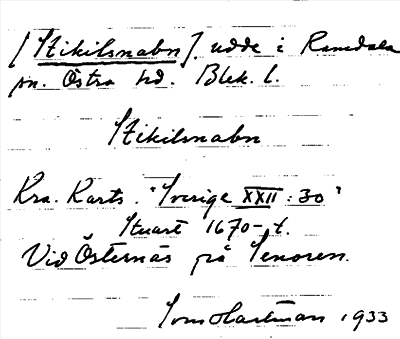 [Stikilsnabn], udde i Ramdala
sn. Östra hd. Blek. l.
Stikilsnabn
Kra. Karts. "Sverige XXII:30"
Stuart 1670-t.
Vid Östernäs på Senoren.
Tom Hartman 1933